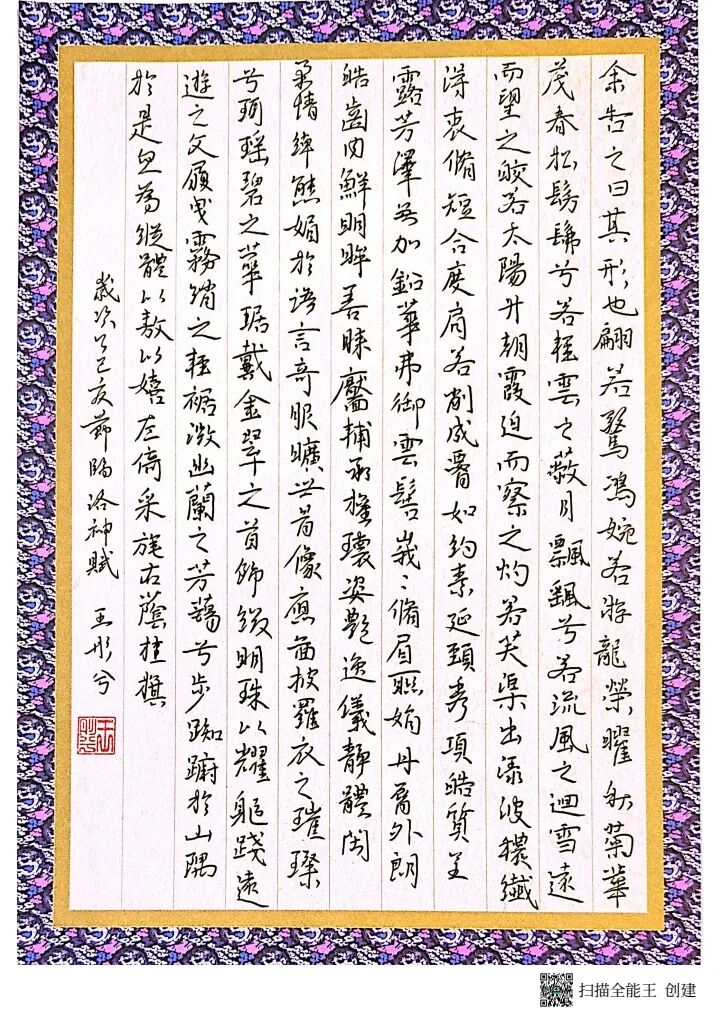 余告之曰其形也翩若驚鴻婉若游龍榮曜秋菊華
茂春松髣髴兮若輕雲之蔽月飄颻兮若流風之迴雪遠
而望之皎若太陽升朝霞迫而察之灼若芙渠出淥波穠纖
得衷脩短合度肩若削成腰如約素延頸秀項皓質呈
露芳澤無加鉛華弗御雲髻峩々脩眉聯娟丹脣外朗
皓齒内鮮明眸善睞靨輔承權瓌姿艷逸儀靜體閑
柔情綽態媚於語言奇服曠世骨像應圖披羅衣之璀璨
兮珥瑤碧之華琚戴金翠之首飾綴明珠以耀軀踐遠
遊之文履曳霧綃之輕裾微幽蘭之芳藹兮步踟躕於山隅
於是忽為縱體以敖以嬉左倚采旄右蔭桂旗
歲次己亥節臨洛神賦 王彤兮
扫描全能王 创建